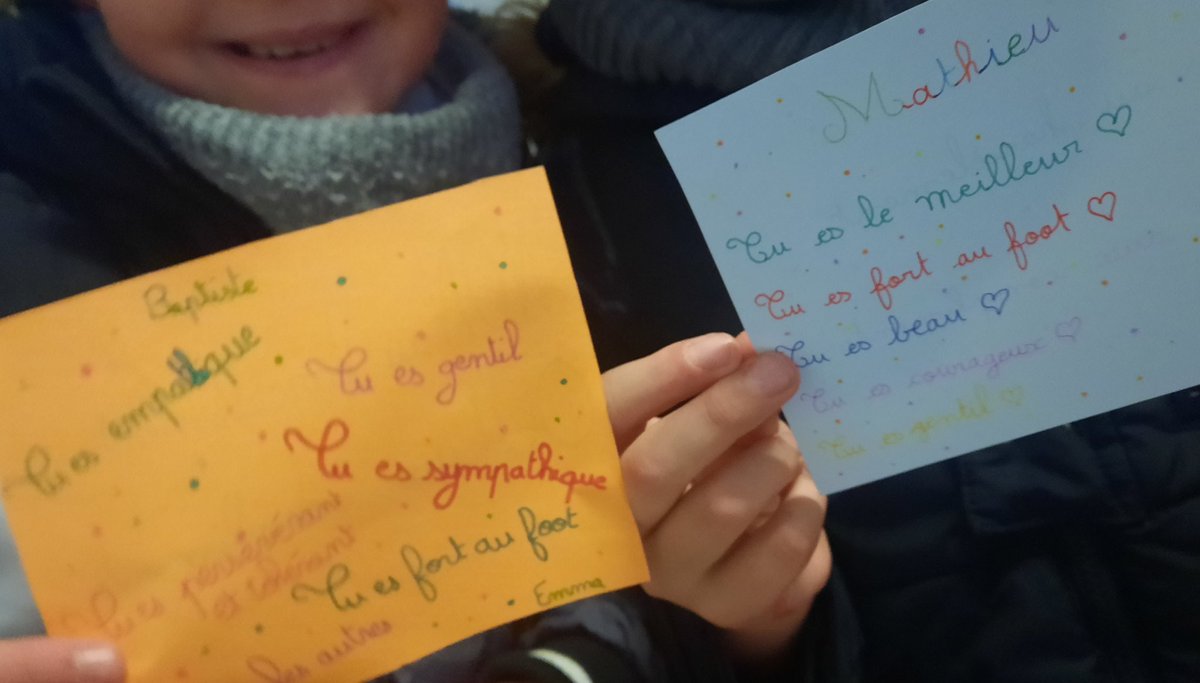 Baptiste
Tu es empathique
Tu es gentil
Tu es sympathique
Tu es persévérant
et tolérant
Tu es fort au foot
Emma
les autres
Mathieu
Tu es le meilleur ♡
Tu es fort au foot ♡
Tu es beau ♡
Tu es courageux ♡
Tu es gentil ♡